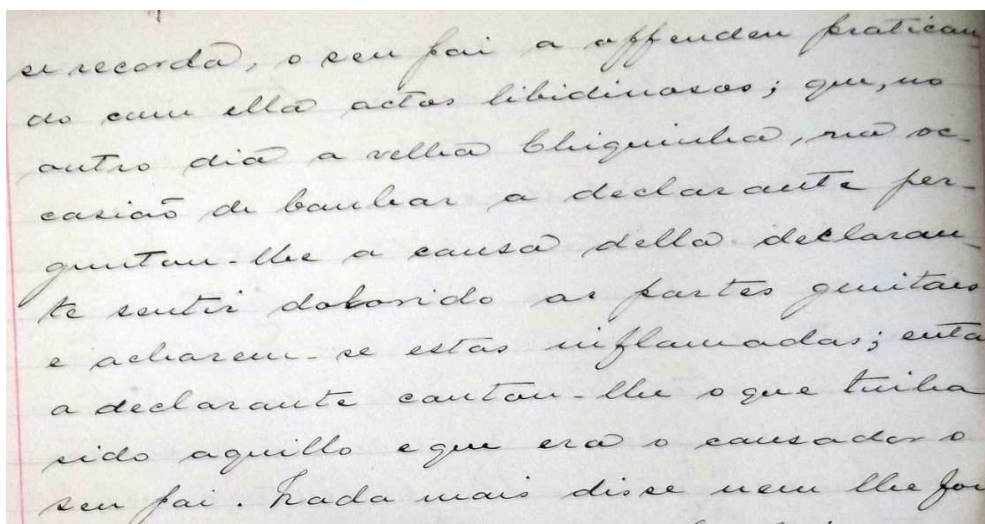 se recorda, o seu pai a offendeu pratican
do com ella actos libidinosos; que, no
outro dia a velha Chiquinha, na oc-
casião de banhar a declarante per-
guntou-lhe a causa della declaran-
te sentir dolorido as partes genitaes
e acharem-se estas inflamadas; entã
a declarante contou-lhe o que tinha
sido aquillo e que era o causador o
seu pai. Nada mais disse nem lhe foi